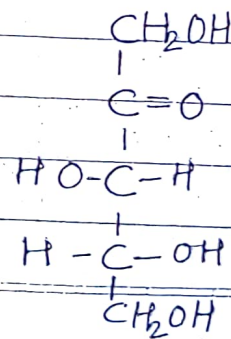 CH₂OH
C=O
HO-C-H
H-C-OH
CH₂OH